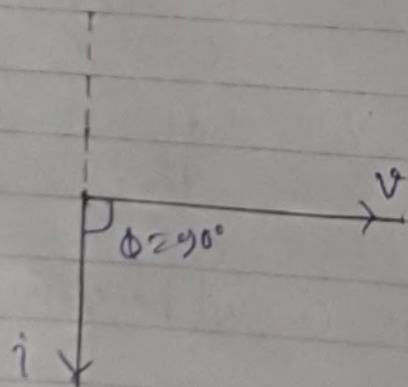 v
ϕ=90°
i